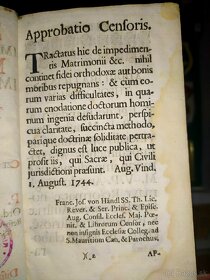 Approbatio Censoris.
TRactatus hic de impedimen-
tis Matrimonii &c. nihil
continet fidei orthodoxæ aut bonis
moribus repugnans: & cùm eo-
rum varias difficultates, in quan-
rum enodatione doctorum homi-
num ingenia desudarunt, perspi-
cua claritate, succincta methodo,
parique doctrinæ soliditate pertra-
ctet, dignus est luce publica, ut
prosit iis, qui Sacræ, qui Civili
jurisdictioni præsunt. Aug. Vind.
1. August. 1744.
Franc. Jos. von Händl SS. Th. Lic.
Rever. & Ser. Princ. & Episc.
Aug. Consil. Eccles. Maj. Pœ-
nit. & Librorum Censor, nec
non insignis Ecclesiæ Colleg. ad
S. Mauritium Can. & Parochus.
AP-